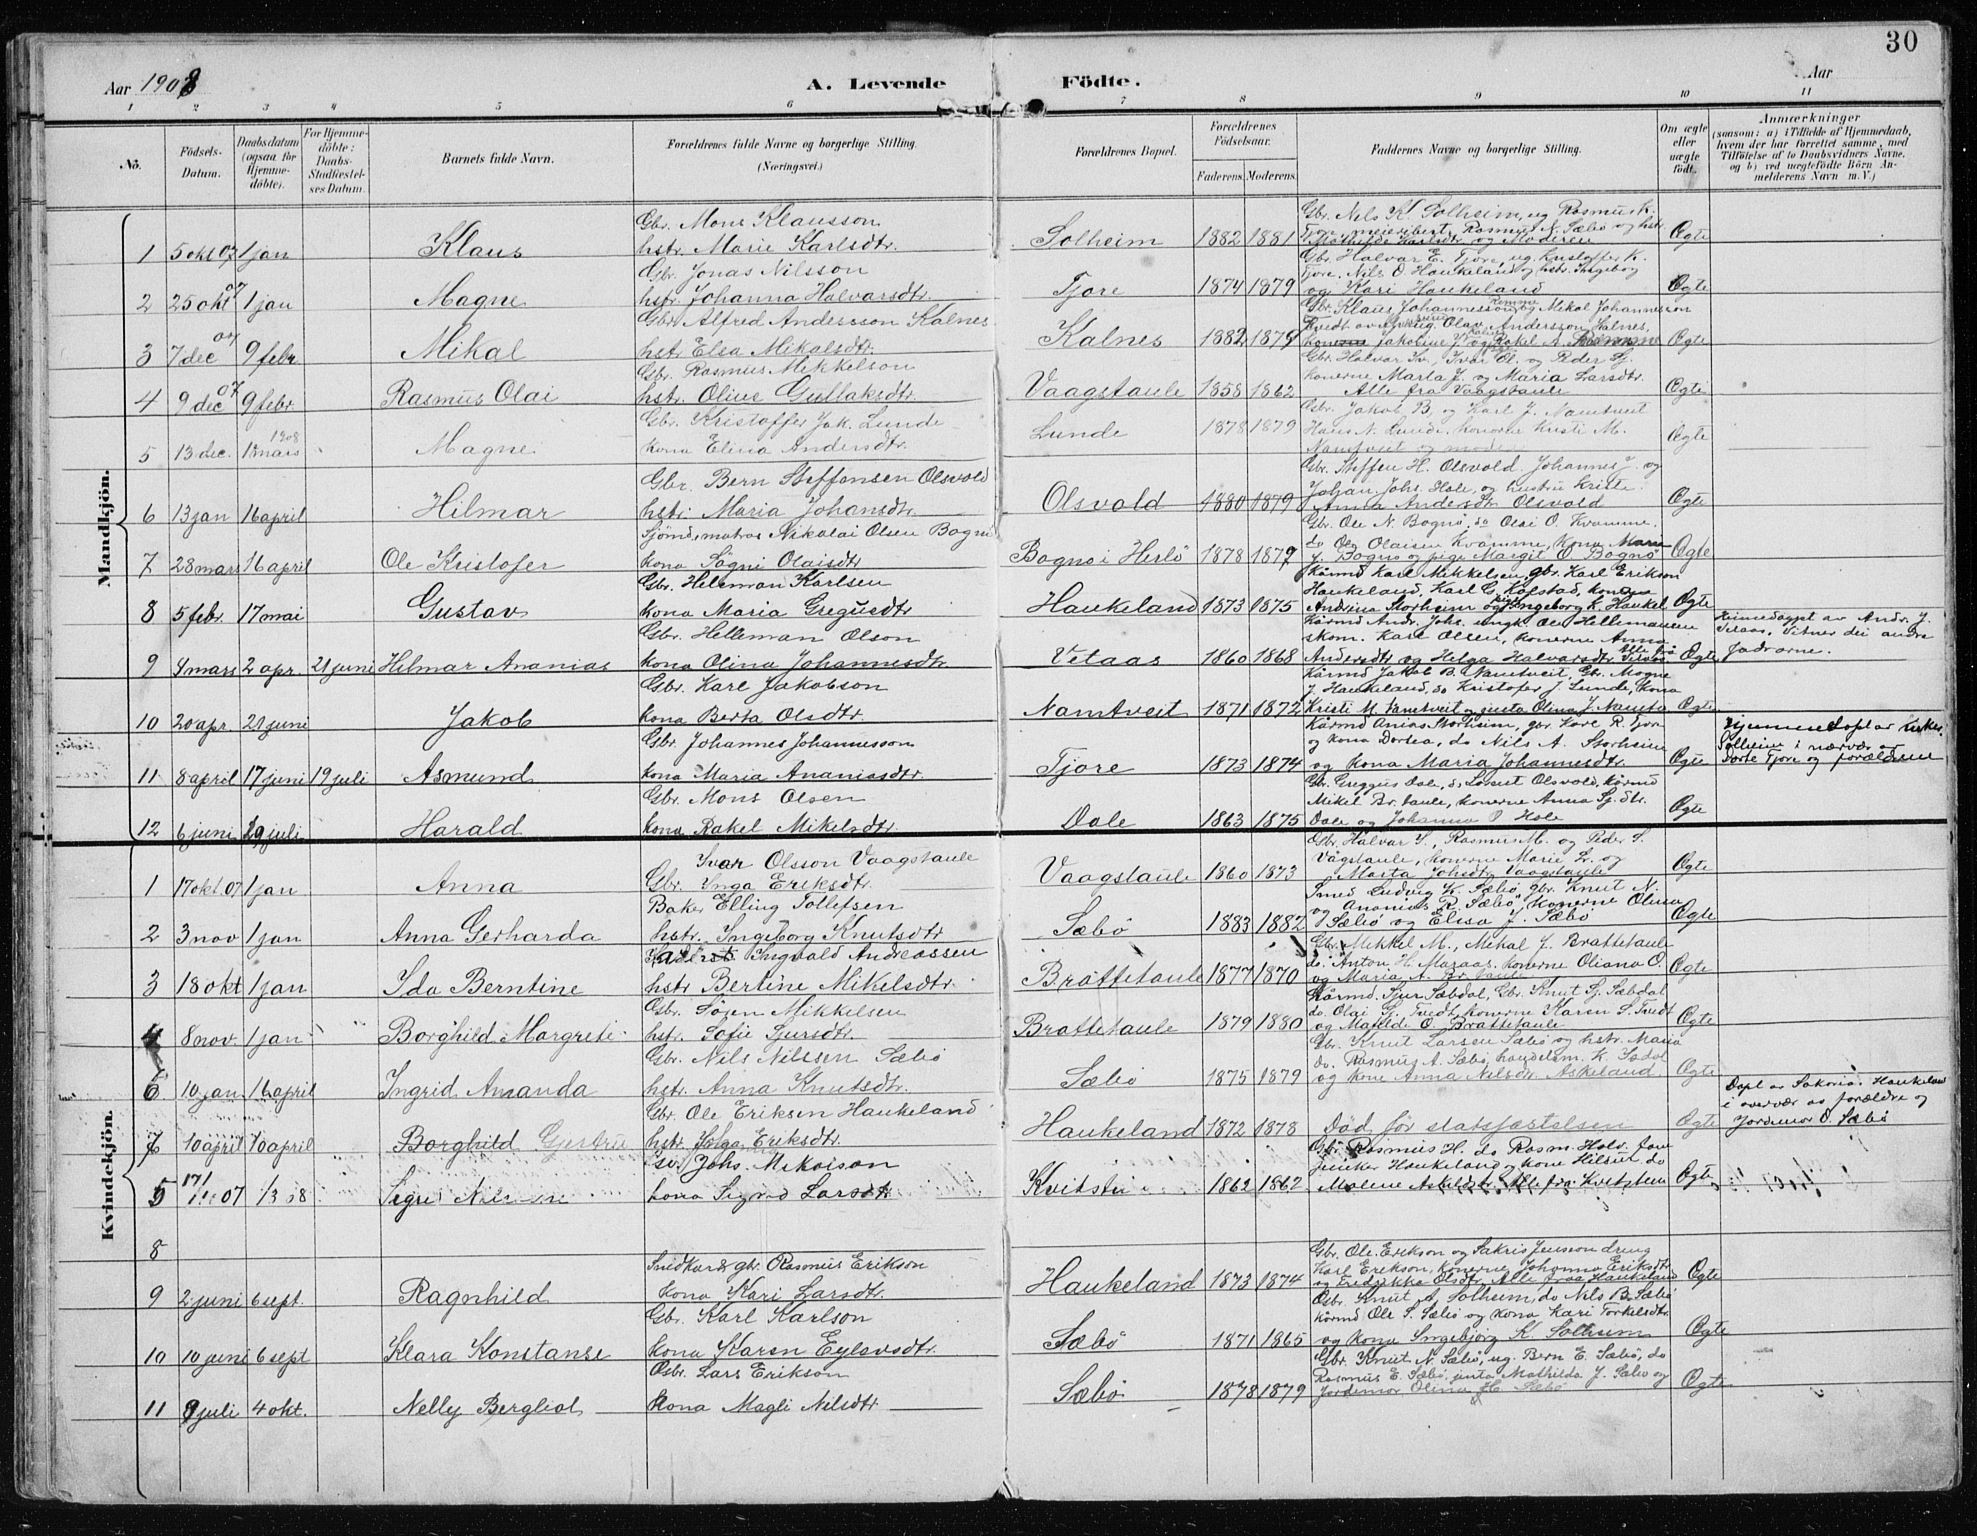 30
Aar 1908 A. Levende Födte. Aar
1 2 3 4 5 6 7 8 9 10 11
No. Födsels-Datum. Daabsdatum (ogsaa for Hjemme-döbte). For Hjemme-döbte: Daabs-Stadfæstel-ses Datum. Barnets fulde Navn. Forældrenes fulde Navne og borgerlige Stilling. (Næringsvei.) Forældrenes Bopæl. Forældrenes Födselsaar. Faderens. Moderens. Faddernes Navne og borgerlige Stilling. Om ægte eller uægte födt. Anmærkninger (saasom: a) i Tilfælde af Hjemmedaab, hvem der har forrettet samme, med Tilföielse af to Daabsvidners Navne, og b) ved uægtefödte Börn An-melderens Navn m. V.)
Mandkjön.
Gbr. Mons Klausson
Gbr. Nils K. Solheim, ug Rasmus K.
1 5 okt 07 1 jan Klaus hstr. Marie Karlsdtr. Solheim 1882 1881 Tjore, meieribest. Rasmus N. Sæbö og hstr. Ægte
Mathilde Karlsdtr og Moderen
Gbr. Jonas Nilsson
Gbr. Halvar E. Tjore, ug. Kristoffer K.
Tjore. Nils O Haukeland og hstr. Ingeborg
2 25 okt 07 1 jan Magne hstr. Johanna Halvarsdtr. Tjore 1874 1879 og Kari Haukeland Ægte
Gbr. Alfred Andersson Kalnes
Gbr. Klaus Johannesson og Mikal Johannesson
3 7 dec 07 9 febr Mikal hstr. Elsa Mikalsdtr. Kalnes 1882 1879 Jakolina J. og Rakel A. Ægte
Gbr. Rasmus Mikkelson
Gbr. Halvar Iv., Ivar Ol. og Peder Sj.
konerne Marta J. og Maria Larsdtr.
4 9 dec 07 9 febr. Rasmus Olai hstr. Oline Gullaksdtr. Vaagstaule 1858 1862 Alle fra Vaagstaule Ægte
Gbr. Kristoffer Jak. Lunde
Gbr. Jakob B. og Karl J. Namtveit
5 13 dec. 1908 13 mars Magne kona Elina Andersdtr. Lunde 1878 1879 Hans N. Lunde, konerne Kristi M. Ægte
Namtveit og moderen
Gbr. Bern Steffensen Olsvold
Gbr. Steffen H. Olsvold. Johannes J. og
Johan Johs. Hole, og hustru Kriste.
6 13 jan 16 april Hilmar hstr. Maria Johansdtr. Olsvold 1880 1879 Anna Andersdtr Olsvold Ægte
Sjömd, matros Nikolai Olsen Bognö
Gbr. Ole N. Bognö, do Olai O. Kvamme.
do Ole Olaisen Kvamme, Kona Marie
7 28 mars 16 april Ole Kristofer kona Sögni Olaisdtr Bognö i Herlö 1878 1879 J. Bognö og pige Margit O Bognö Ægte
Gbr. Helleman Karlsen
Kårmd Karl Mikkelsen, gbr. Karl Erikson
Haukeland, Karl C. Kolstad, konerne
8 5 febr. 17 mai Gustav kona Maria Gregusdtr Haukeland 1873 1875 Andrina Storheim og Ingeborg K. Haukel. Ægte
Gbr. Helleman Olson
Kårmd Andr. Johs. ungk Ole Hellemansen
skom. Karl Olsen, konerne Anna
Heimedöypt av Andr. J.
Vetaas. Vitner dei andre
fadrarne.
9 4 mars 2 apr. 21 juni Hilmar Ananias kona Olina Johannesdtr Vetaas 1860 1868 Andersdtr og Helga Halvarsdtr. Alle frå Vetaas. Ægte
Gbr. Karl Jakobson
Kårmd Jakob B. Namtveit, Gbr. Mogne
J. Haukeland, do Kristofer J Lunde, kona
10 20 apr. 21 juni Jakob kona Berta Olsdtr. Namtveit 1871 1872 Kristi M. Namtveit og jenta Olina J. Namtv. Ægte
Gbr. Johannes Johannesson
Kårmd Anias Storheim, gbr Kare R. Tjore
og kona Dortea, do Nils A. Storheim
11 8 april 17 juni 19 juli Asmund kona Maria Ananiasdtr. Tjore 1873 1874 og kona Maria Johannesdtr Ægte
Solheim i nærvær av
Dorte Tjore og forældrene
Gbr. Mons Olsen
Gbr. Greggus Dale, do Lasset Olsvold, kårmd
Mikel Br. taule, konerne Anna Sj. dtr.
12 6 juni 19 juli Harald kona Rakel Mikelsdtr Dale 1863 1875 Dale og Johanna O Hole Ægte
Kvindekjön.
Ivar Olsson Vaagstaule
Gbr. Halvar S., Rasmus M. og Peder S.
Vågstaule, konerne Marie Lr. og
1 17 okt 07 1 jan Anna Gbr. Inga Eriksdtr. Vaagstaule 1860 1873 Marta Johsdtr Vaagstaule Ægte
Baker Elling Tollefsen
Smed Ludvig K. Sæbö, gbr. Knut N.
og Ananias R. Sæbö, konerne Olina
2 3 nov 1 jan Anna Gerharda hstr. Ingeborg Knutsdtr Sæbö 1883 1882 Sæbö og Elisa J. Sæbö Ægte
Ingvald Andreassen
Gbr. Mikkel M., Mikal J. Brattetaule
do. Anton H. Maraas. konerne Oliana O.
3 18 okt 1 jan Ida Berntine hstr Bertine Mikelsdtr. Brattetaule 1877 1870 og Maria A. Br. taule Ægte
Gbr. Sören Mikkelsen
Kårmd. Sjur Sæbdal, Gbr. Knut Sj. Sæbdal
do. Olai Sj. Tvedt, konerne Karen S. Tvedt
4 8 nov 1 jan Borghild Margrete hstr. Sofie Sjursdtr. Brattetaule 1879 1880 og Matilde O Brattetaule Ægte
Gbr. Nils Nilssen Sæbö
Gbr. Knut Larsen Sæbö og hstr. Maria
do. Rasmus A. Sæbö, handelsm. K. Sædal
6 10 jan 16 april Ingrid Amanda hstr. Anna Knutsdtr. Sæbö 1875 1879 og kone Anna Nilsdtr Askeland Ægte
Gbr. Ole Eriksen Haukeland
Döpt av Sakaria Haukeland
i overvær av forældre og
Jordmor O. Sæbö
7 10 april 10 april Borghild Gjertrud hstr Helga Eriksdtr. Haukeland 1872 1878 Död för statsfæstelsen Ægte
Johs. Mikaison
Gbr Rasmus H. do Rasm. Hols.
Haukeland og kone Hilsut do
5 17/ 07 1/3 08 kona Sigrid Larsdtr 1862 1862 Malene Askildsdtr. Alle fra Kvitstein Ægte
8
Snidkar & gbr. Rasmus Erikson
Gbr. Ole Erikson og Sakris Jensson dreng
Karl Erikson, konerne Johanna Eriksdtr
9 2 juni 6 sept. Ragnhild kona Kari Larsdtr. Haukeland 1873 1874 og Fredrikka Olsdtr, Alle fraa Haukeland Ægte
Gbr. Karl Karlson
Gbr. Knut A. Solheim, do Nils B. Sæbö
kårmd Ole S. Sæbö og kona Kari Torkelsdtr
10 10 juni 6 sept Klara Konstanse kona Karen Eylevsdtr. Sæbö 1871 1865 og kona Ingebjörg K. Solheim Ægte
Gbr. Lars Erikson
Gbr. Knut N. Sæbö, ug. Bern E. Sæbö, do
Rasmus E. Sæbö, jenta Mathilda J. Sæbö og
11 9 juli 4 okt. Nelly Bergliot kona Magli Nilsdtr. Sæbö 1878 1879 Jordemor Olina H. Sæbö Ægte